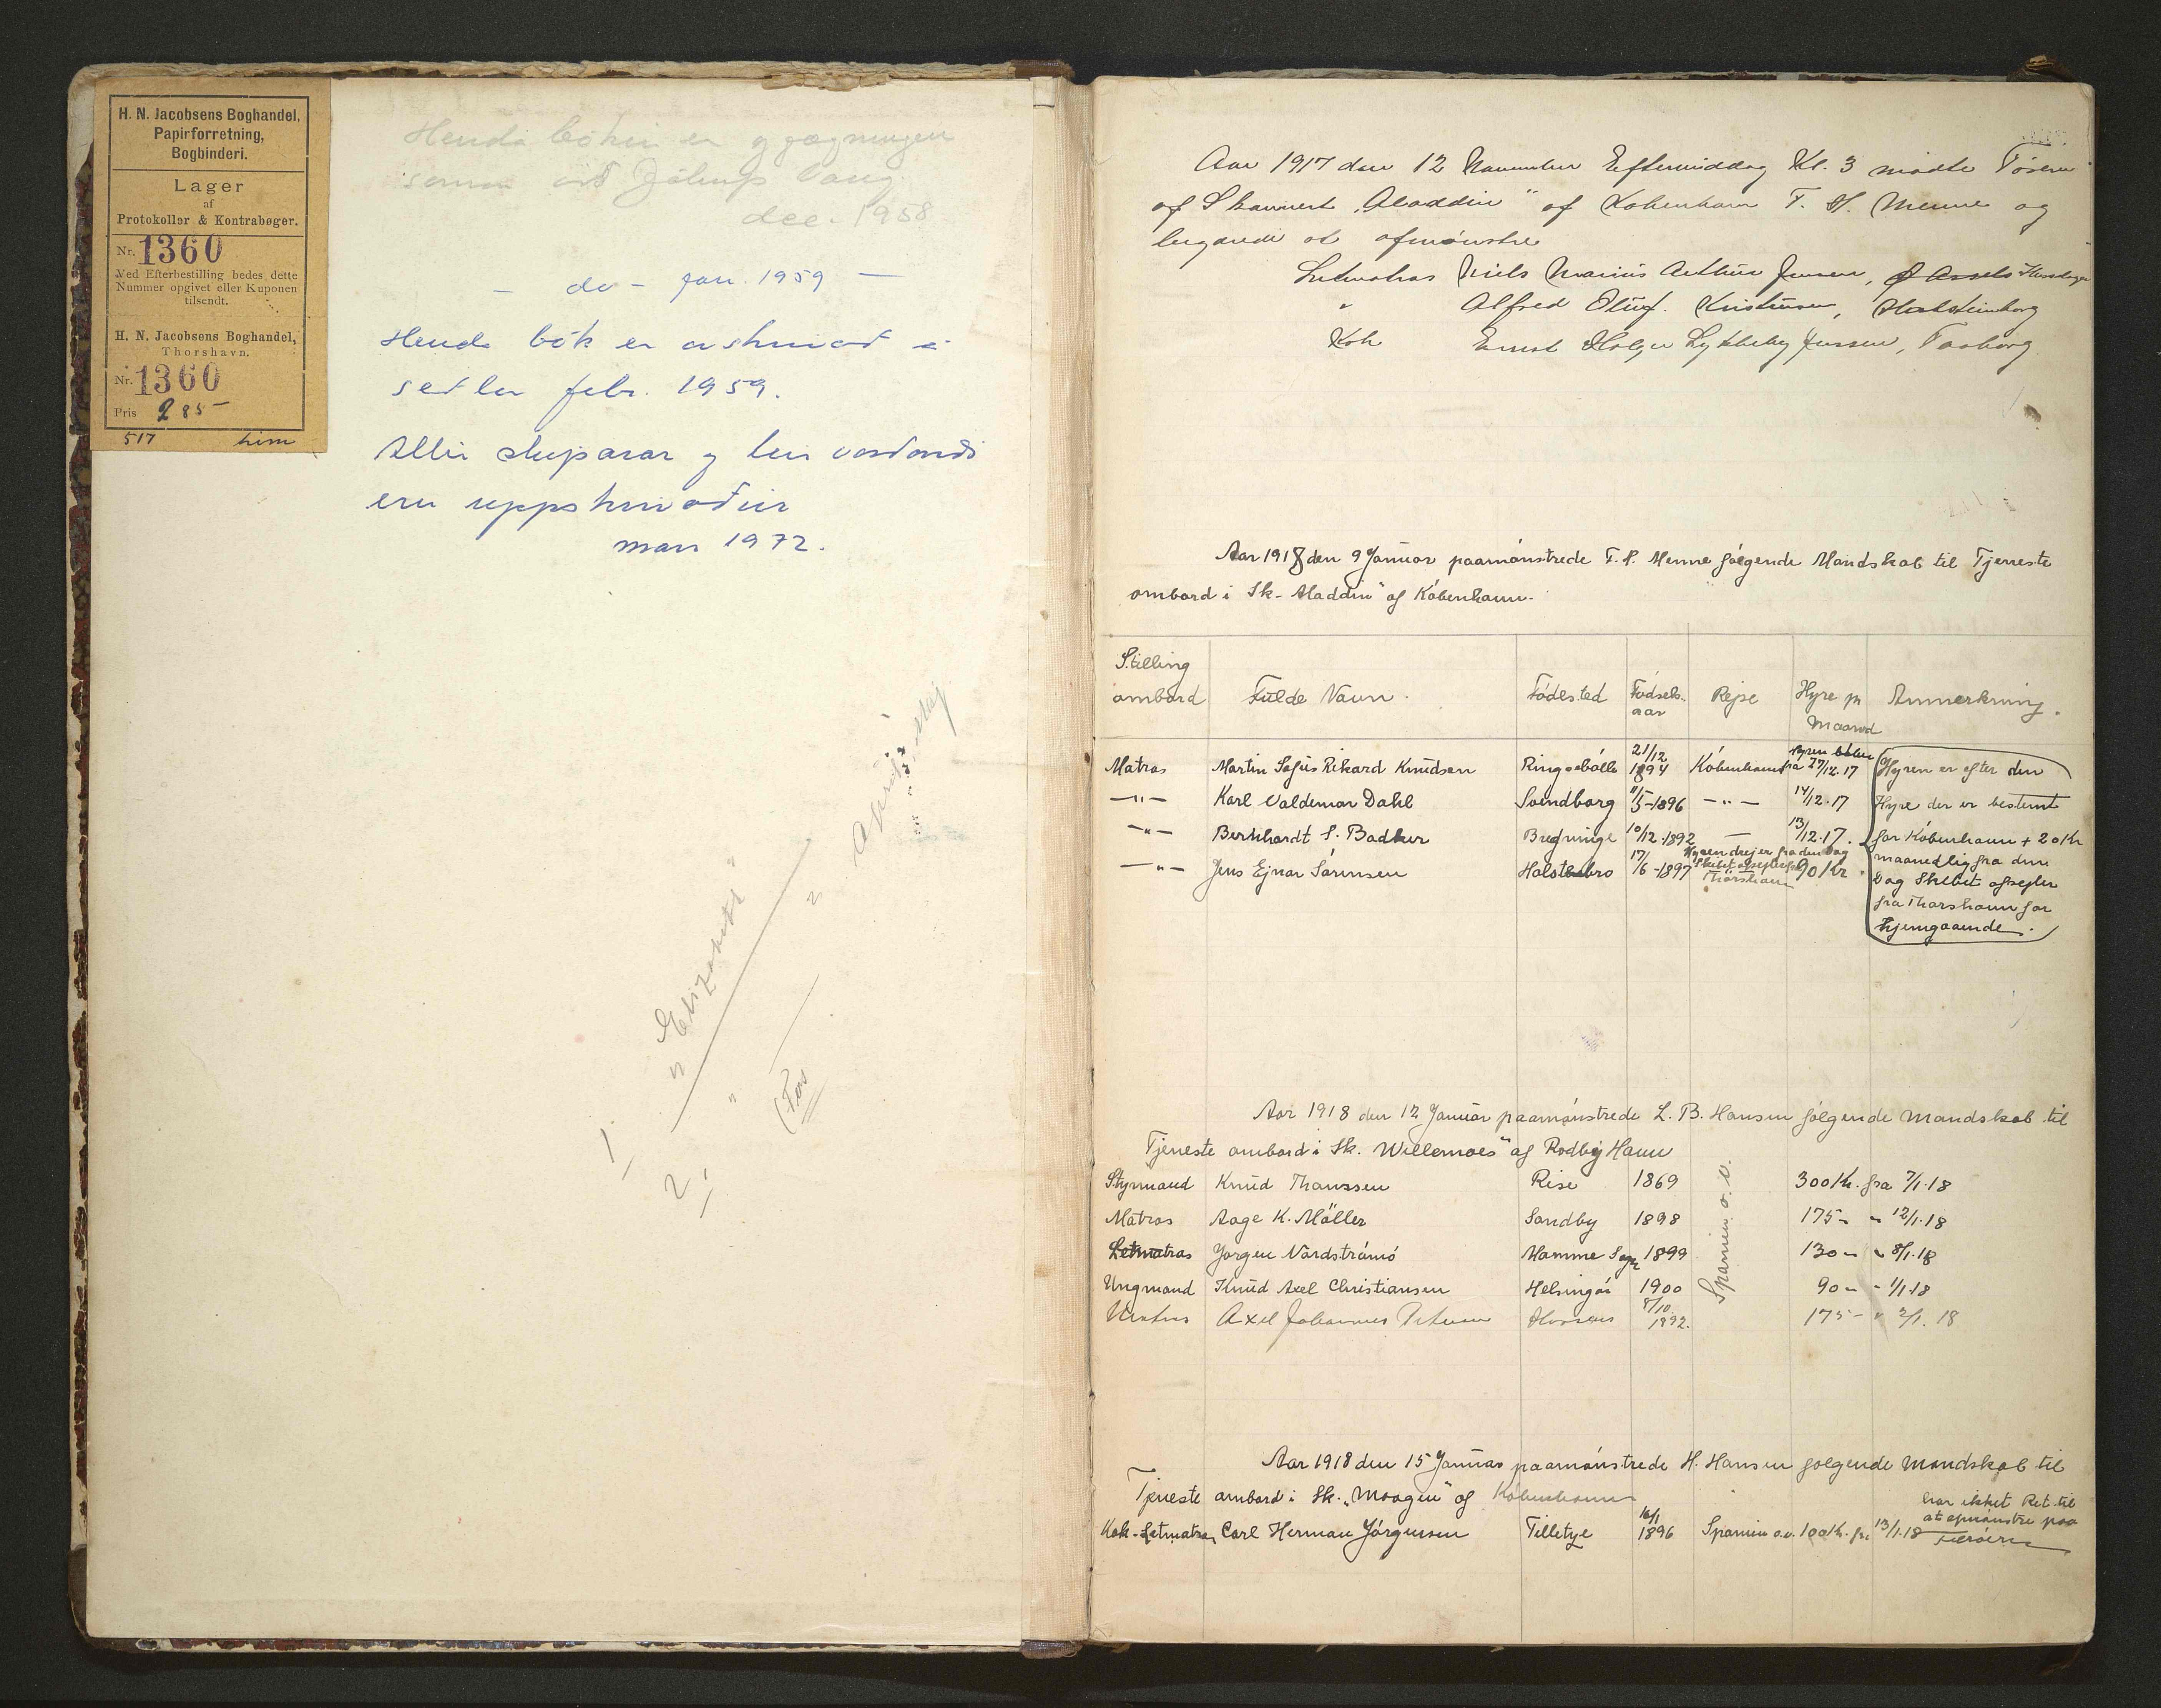 H. N. Jacobsens Boghandel,
Papirforretning,
Bogbinderi.
Lager
af
Protokoller & Kontrabøger.
Nr. 1360
Ved Efterbestilling bedes dette
Nummer opgivet eller Kuponen
tilsendt.
H. N. Jacobsens Boghandel,
Thorshavn.
Nr. 1360
Pris 285-
517
Henda bókin er
dec. 1958
- do - jan. 1959 -
Henda bók er avskrivað á
setlar febr. 1959.
Allir skiparar og
eru uppskrivaðir
mars 1972.
1 " Elizabeth"
2
(Fos
Aar 1917 den 12 November Eftermiddag Kl. 3 mødte Føreren
af Skonnert "Aladdin" af København F. H. Menne og
begærede at afmønstre
Letmatros Niels Marius Arthur Jensen,
" Alfred Oluf Kristensen, Holsteinborg
Kok Ernst Holger Lykkeby Jenssen, Faaborg
Aar 1918 den 9 Januar paamönstrede F. H. Menne fölgende Mandskab til Tjeneste
ombord i Sk. "Aladdin" af Köbenhavn.
Stilling ombord Fulde Navn. Födested Födsels-aar Rejse Hyre pr Maaned Anmerkning.
Matros Martin Sofus Rikard Knudsen Ringsebölle 21/12 1894 Köbenhavn Hyren løber fra 27/12.17
-"- Karl Valdemar Dahl Svendborg 11/5-1896 -"- 14/12.17
-"- Bernhardt S. Badker Bregninge 10/12.1892 — 13/12.17.
-"- Jens Ejnar Sörensen Holstebro 17/6-1897 Hyren fra den Dag Skibet afsejler fra Thorshavn 90 Kr.
Hyren er efter den
Hyre der er bestemt
for Köbenhavn + 20 Kr
maanedlig fra den
Dag Skibet afsejler
fra Thorshavn for
hjemgaaende.
Aar 1918 den 12 Januar paamönstrede L. B. Hansen fölgende Mandskab til
Tjeneste ombord i Sk. "Willemoes" af Rødby Havn
Styrmand Knud Thanssen Rise 1869 300 Kr. fra 7/1.18
Matros Aage K. Möller Sandby 1898 175 - " 12/1.18
Letmatros Jörgen Nordströmö 1899 130 - " 8/1.18
Ungmand Knud Axel Christiansen Helsingör 1900 90 - " 1/1.18
Matros Axel Johannes Horsens 8/10. 1892. 175 - " 2/1.18
Spanien o. v.
Aar 1918 den 15 Januar paamönstrede H. Hansen fölgende Mandskab til
Tjeneste ombord i Sk. "Maagen" af Köbenhavn
Kok-Letmatros Carl Herman Jörgensen Tilletye 16/1 1896 Spanien o.v. 100 Kr. fra 13/1.18
har ikket Ret til
at afmönstre paa
Færöerne